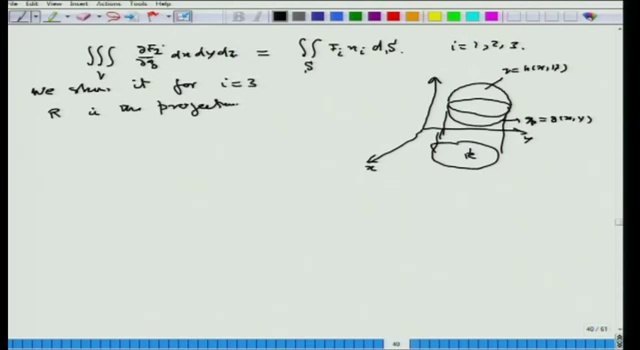 File Edit View Insert Actions Tools Help
∭_V ∂F_i/∂x_i dx dy dz = ∬_S F_i n_i dS. i = 1, 2, 3.
We show it for i = 3
R is the projection
z = h(x, y)
z = g(x, y)
y
x
R
40 / 61
40